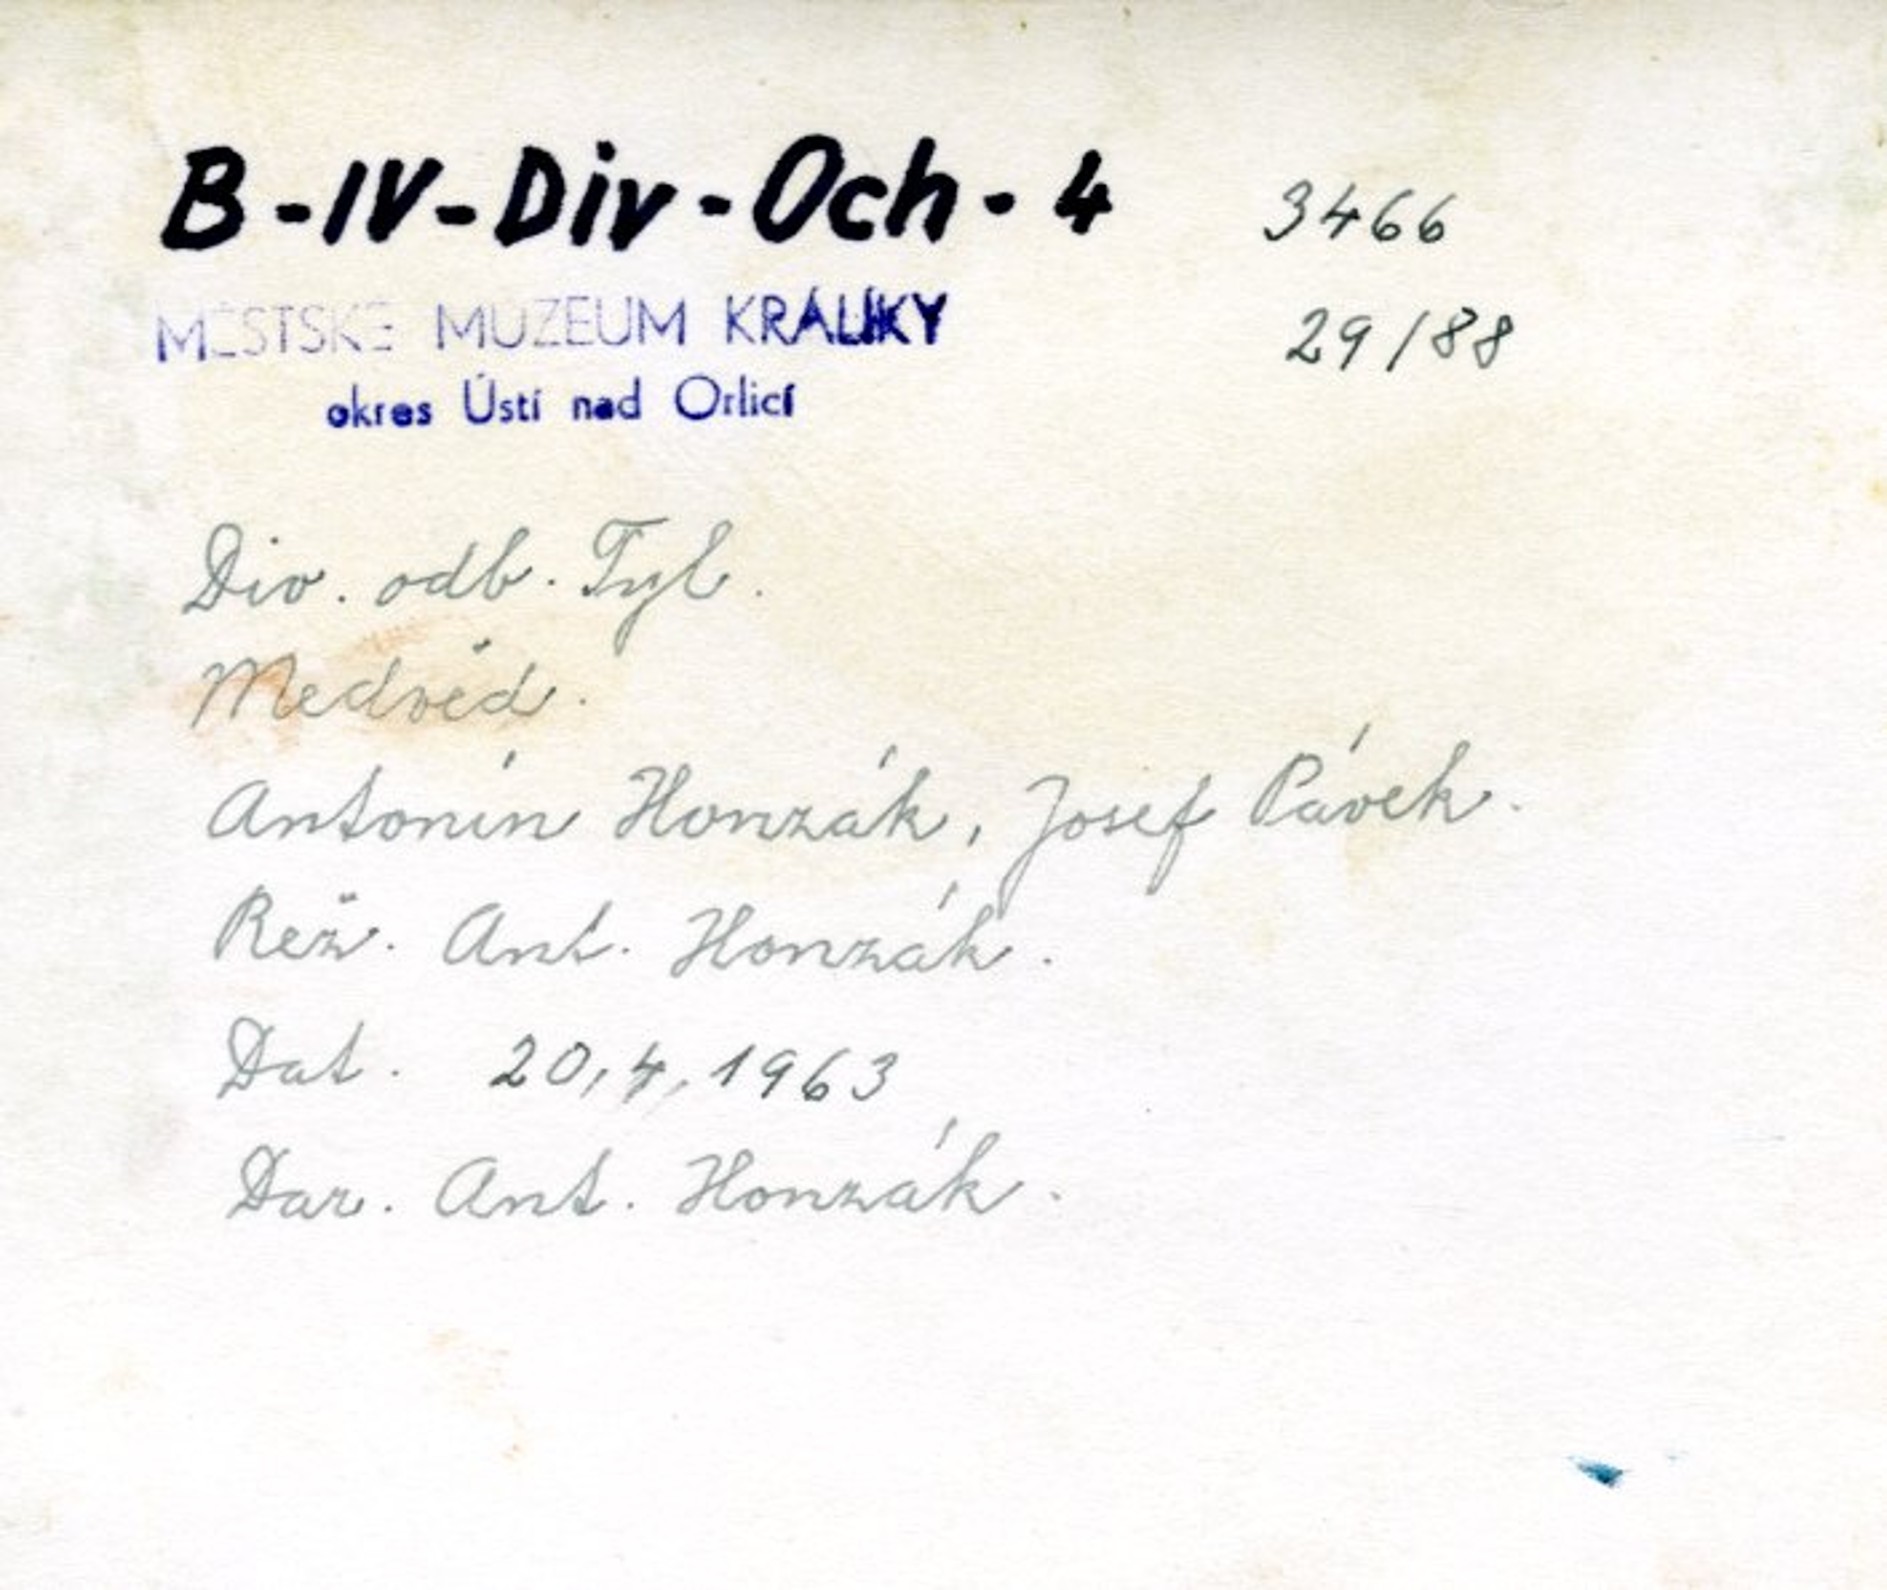 B-IV-Div-Och-4 3466
MĚSTSKÉ MUZEUM KRÁLÍKY 29/88
okres Ústí nad Orlicí
Div. odb. Tyl.
Medvěd.
Antonín Honzák, Josef Pávek.
Rež. Ant. Honzák.
Dat. 20,4,1963
Dar. Ant. Honzák.